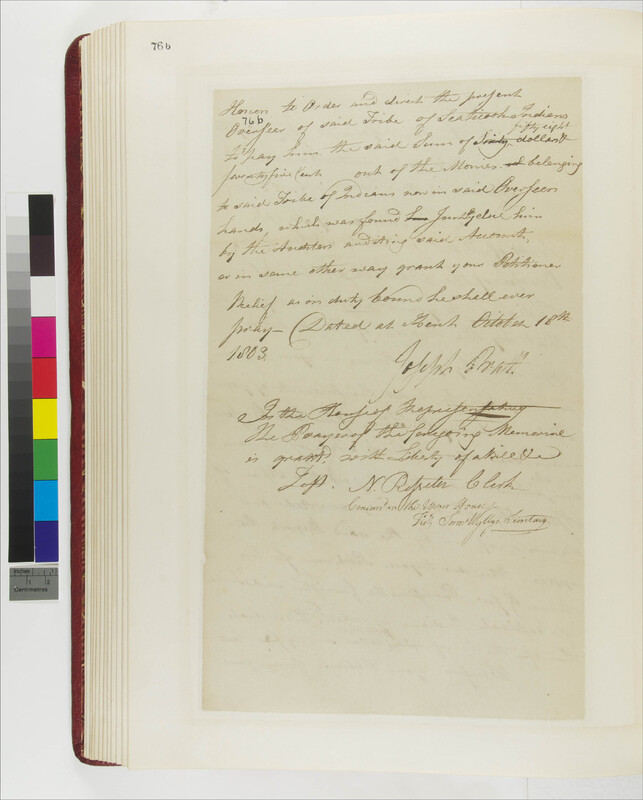 76b
Honors to Order and direct the present
76b
Overseer of said Tribe of Scaticook Indians
fifty eight
to pay him the said Sum of Sixty dollars &
seventy five Cents out of the Monies belonging
to said Tribe of Indians now in said Overseers
hands, which was found to Justly due him
by the Auditors auditing said Accounts,
or in some other way grant your Petitioner
Relief as in duty bound he shall ever
pray — (Dated at Kent October 18th
1803.
Joseph Pratt
In the House of Representatives
The Prayer of the foregoing Memorial
is granted with Liberty of a bill &c
Test. Clerk
Concurred in the Upper House
Test Saml Wyllys Secretary
inches 1 2
centimetres